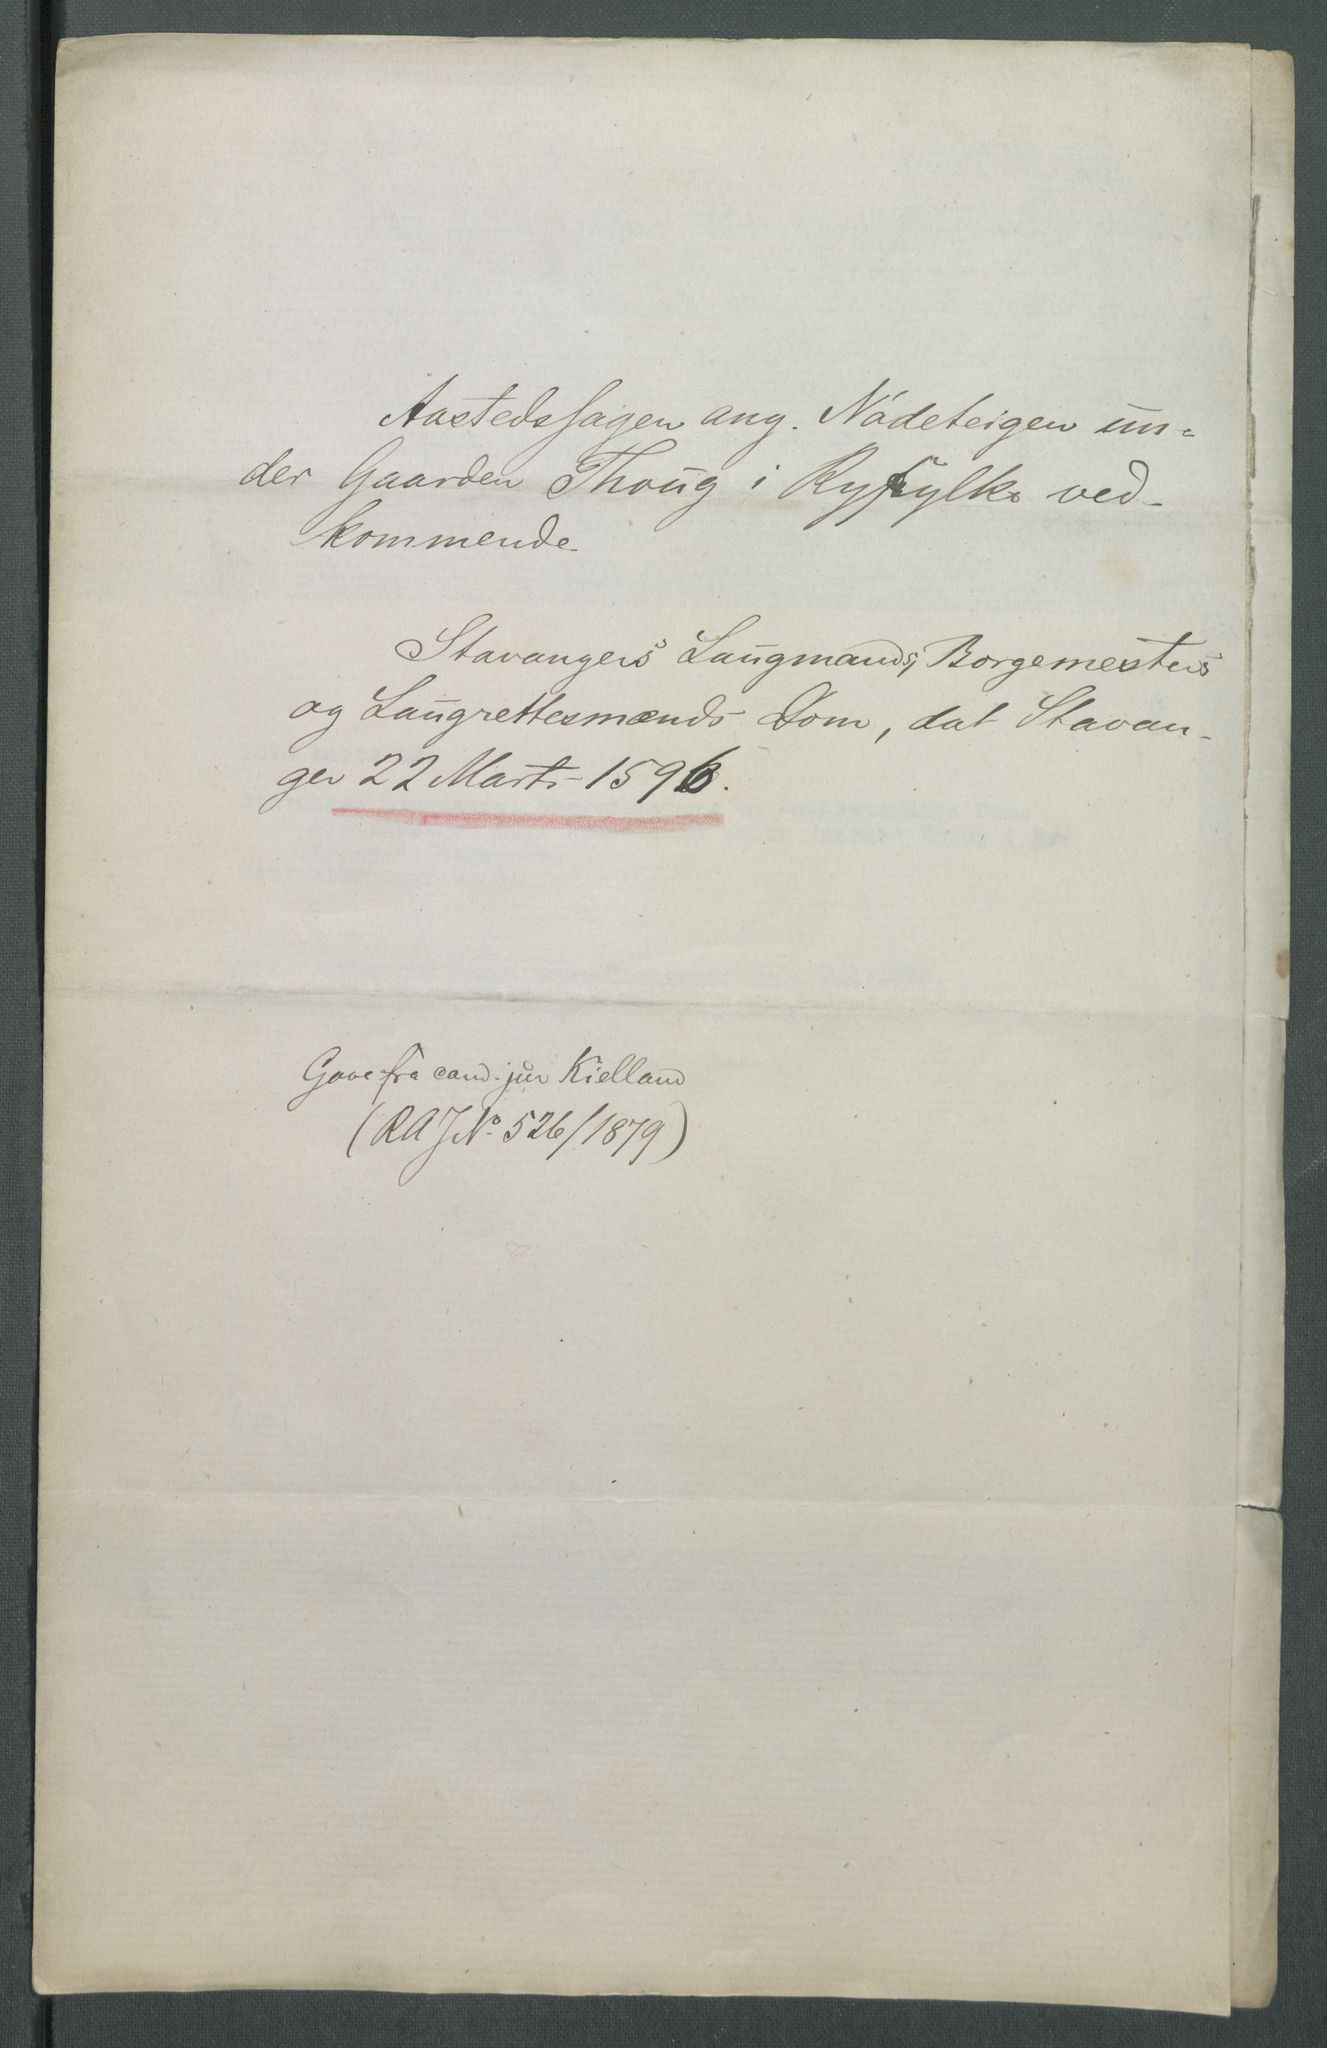 Aastedssagen ang. Nådeteigen un=
der Gaarden Thoug i Ryfylke ved-
kommende.
Stavangers Laugmands, Borgemesters
og Laugrettesmænds Dom, dat Stavan-
ger 22 Marts 1596.
Gave fra cand. jur Kielland
(RA JNo. 526/1879)